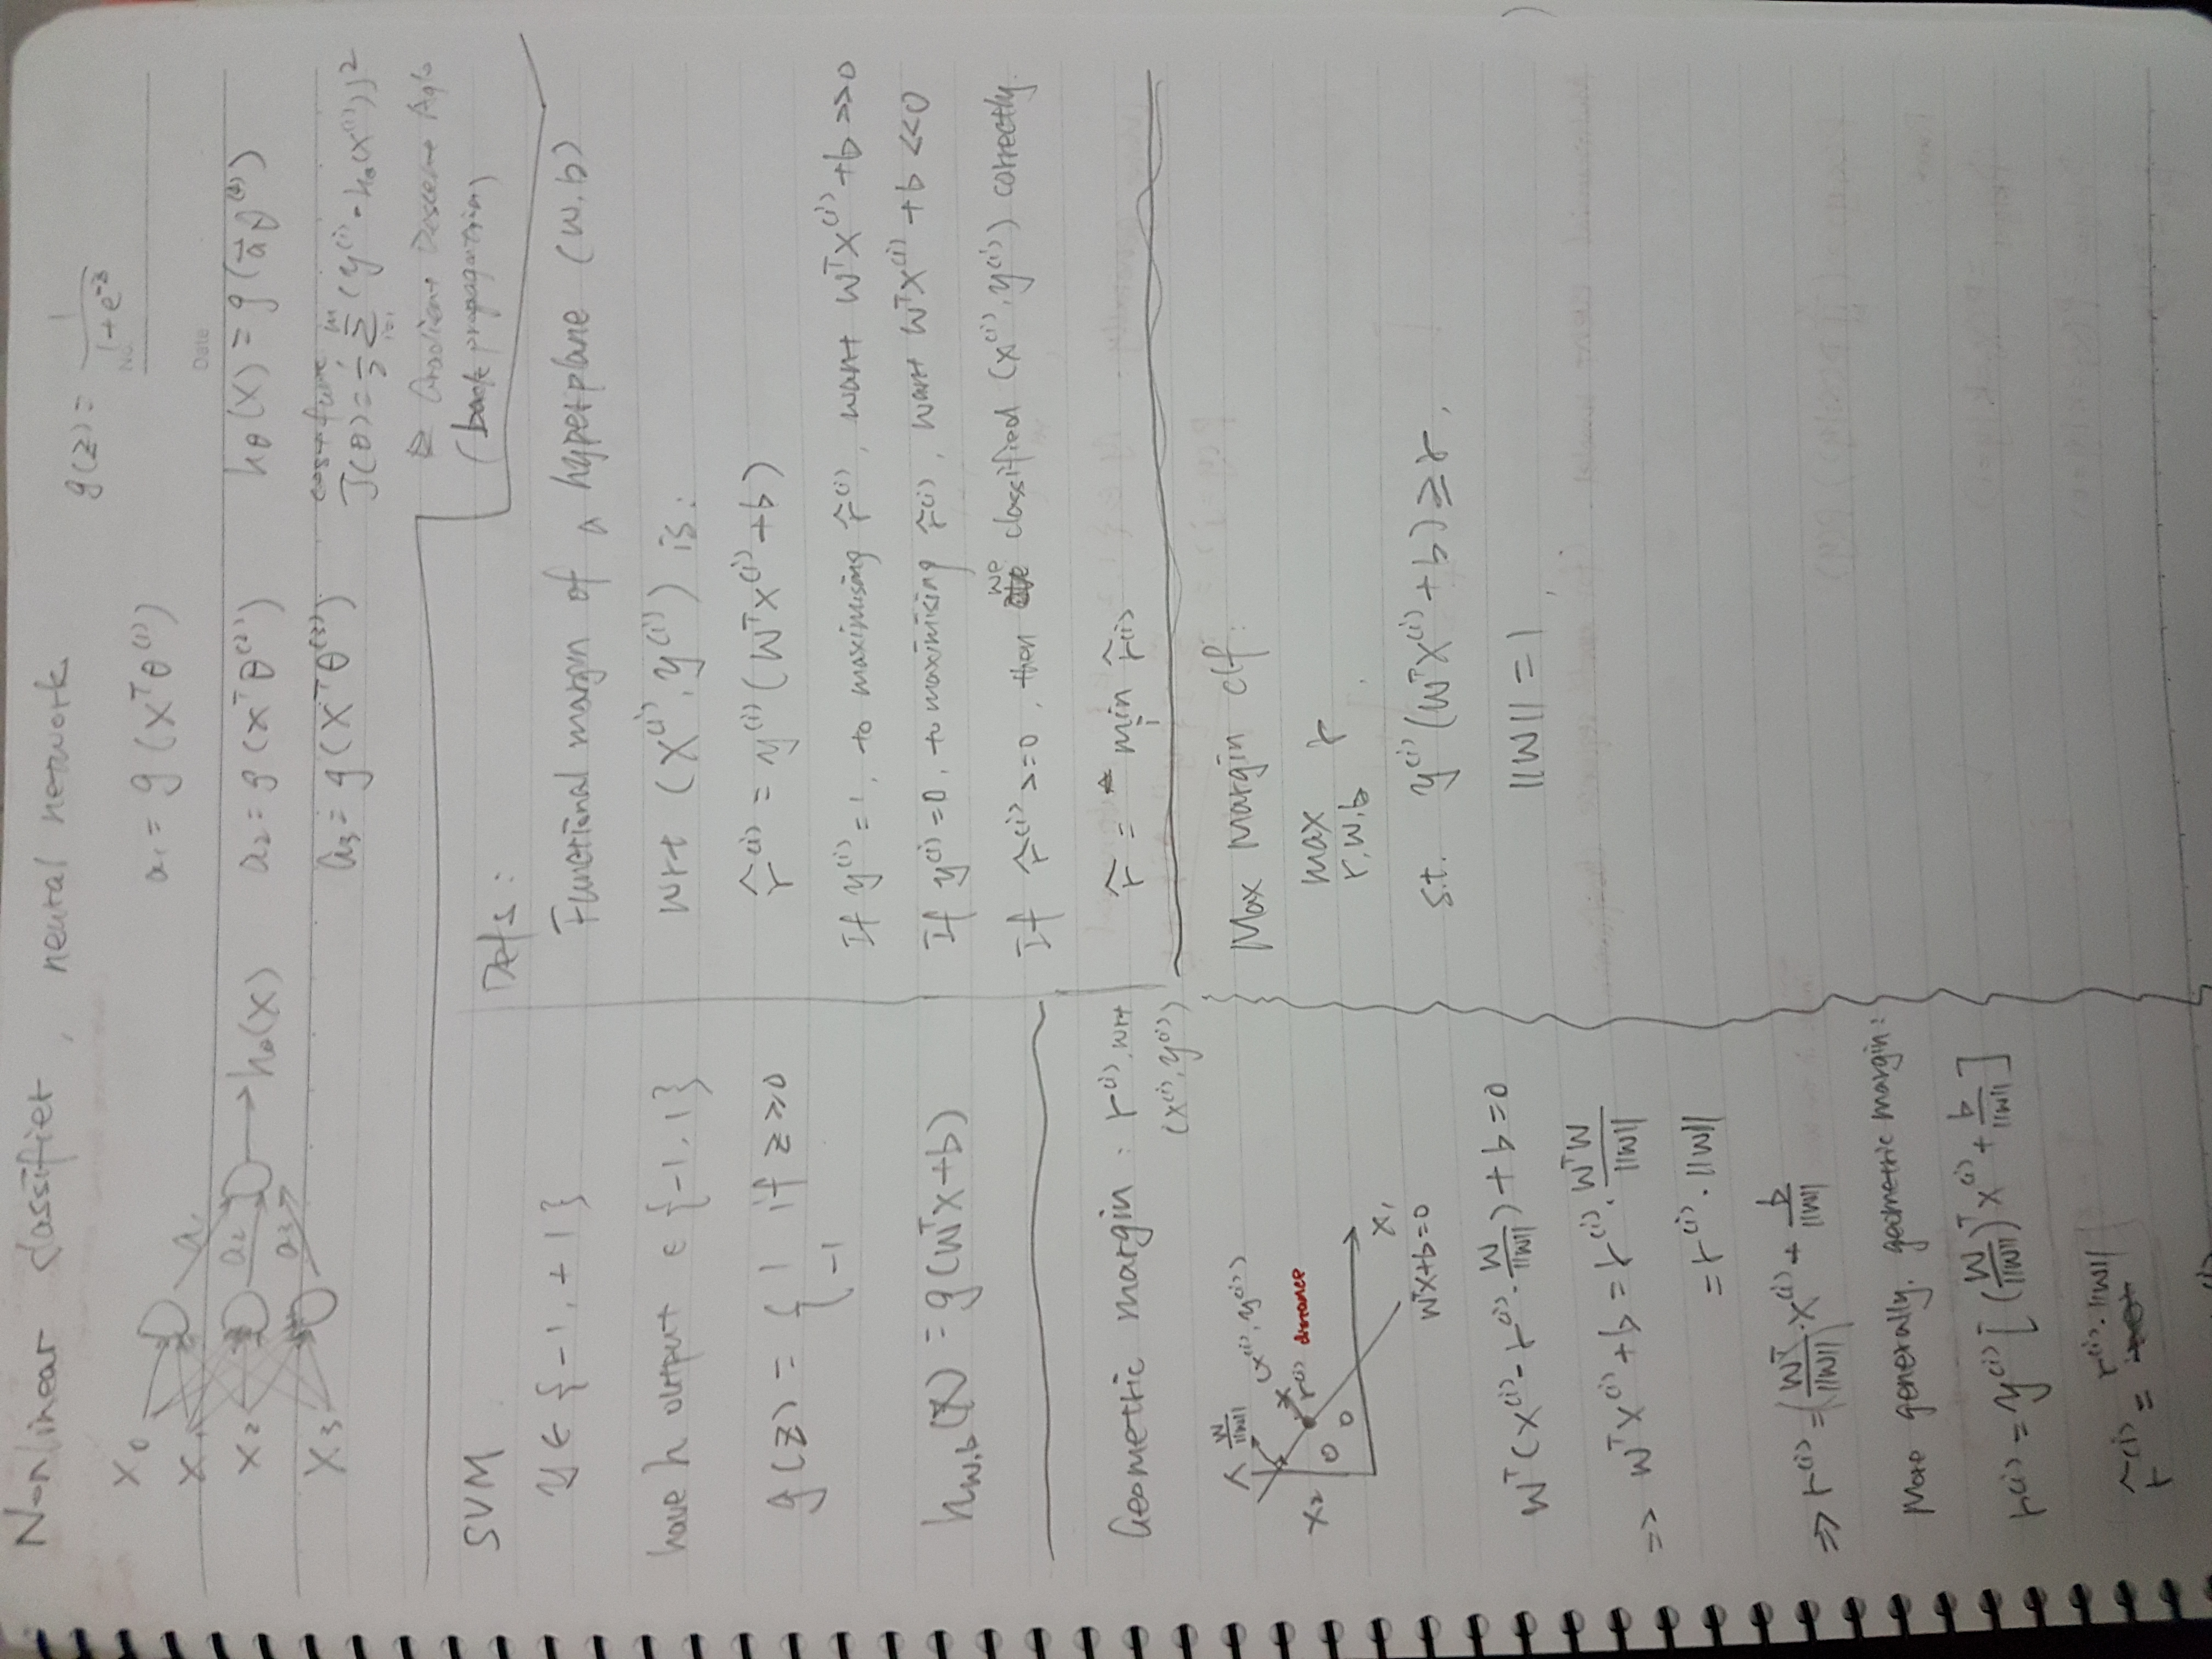 Nonlinear classifier, neural network
g(z) = 1 / (1 + e^-z)
No.
Date
x0
x1
x2
x3
a1
a2
a3
hθ(x)
a1 = g(x^T θ^(1))
a2 = g(x^T θ^(2))
a3 = g(x^T θ^(3))
hθ(x) = g(a⃗ θ^(4))
cost func
J(θ) = 1/2 Σ_{i=1}^{m} (y^(i) - hθ(x^(i)))^2
Gradient Descent
(back propagation)
SVM
y ∈ {-1, +1}
have h output ∈ {-1, 1}
g(z) = { 1 if z ≥ 0
-1
h_{w,b}(x) = g(w^T x + b)
Defs:
Functional margin of a hyperplane (w, b)
wrt (x^(i), y^(i)) is:
r̂^(i) = y^(i) (w^T x^(i) + b)
If y^(i) = 1, to maximising r̂^(i), want w^T x^(i) + b >> 0
If y^(i) = 0, to maximising r̂^(i), want w^T x^(i) + b << 0
If r̂^(i) >= 0, then we classified (x^(i), y^(i)) correctly.
r̂ = min_i r̂^(i)
Geometric margin : r^(i), wrt
(x^(i), y^(i))
w/||w||
(x^(i), y^(i))
r^(i) distance
x2
x1
w^T x + b = 0
w^T (x^(i) - r^(i) · w/||w||) + b = 0
=> w^T x^(i) + b = r^(i) · w^T w/||w||
= r^(i) · ||w||
=> r^(i) = (w^T/||w||) · x^(i) + b/||w||
More generally, geometric margin:
r^(i) = y^(i) [(w/||w||)^T x^(i) + b/||w||]
r̂^(i) = r^(i) · ||w||
Max Margin clf:
max_{r,w,b} r
s.t. y^(i) (w^T x^(i) + b) ≥ r,
||w|| = 1